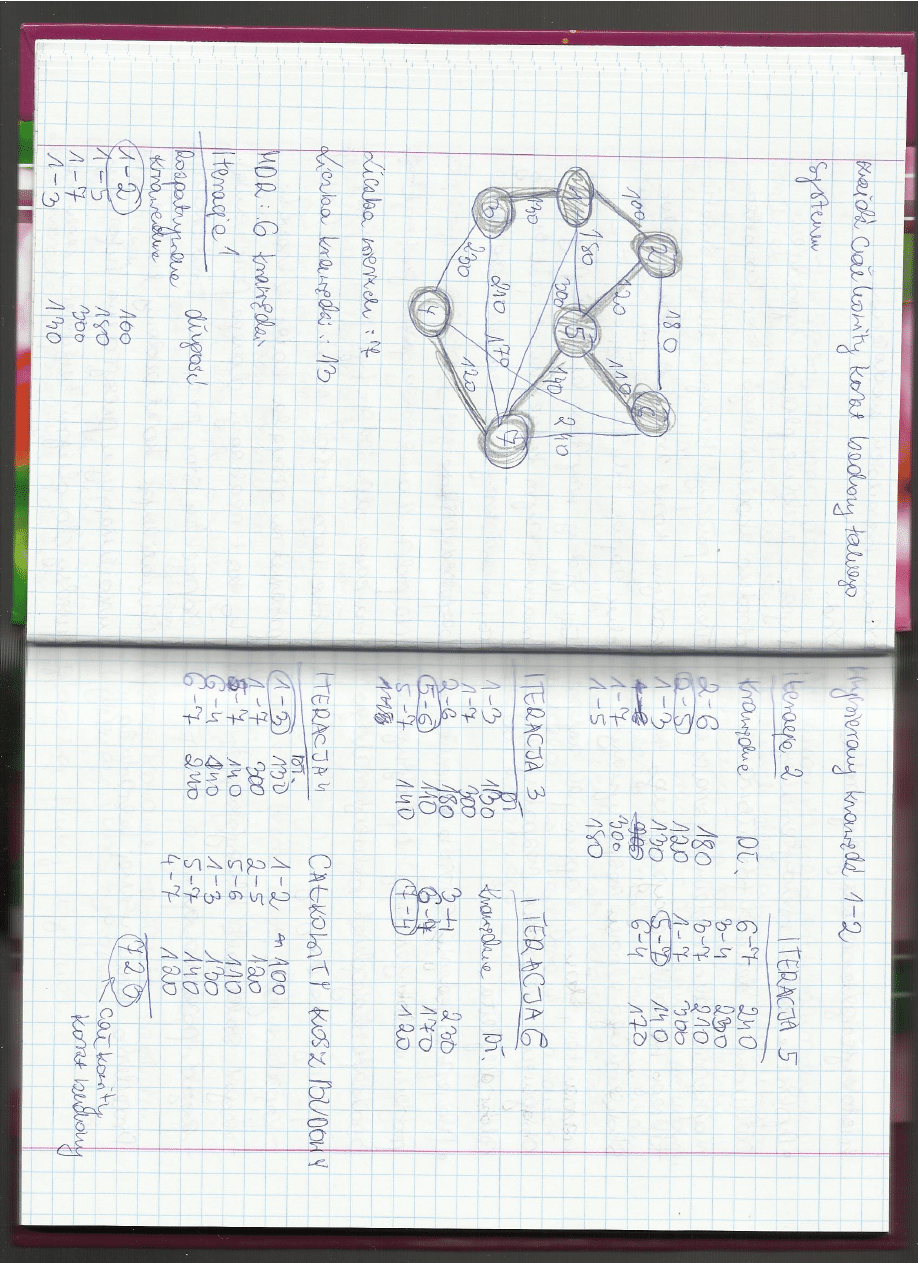 znaleźć całkowity koszt budowy takiego
systemu
1
2
3
4
5
6
7
100
130
180
300
120
180
110
140
230
210
170
120
240
Liczba wierzch: 7
Liczba krawędzi: 13
MDR: 6 krawędzi
Iteracja 1
rozpatrywane długość
krawędzie
1-2 100
1-5 180
1-7 300
1-3 130
Wybieramy krawędź 1-2
Iteracja 2
krawędzie Dł.
2-6 180
2-5 120
1-3 130
1-7 300
1-5 180
ITERACJA 3
Dł.
1-3 130
1-7 300
2-6 180
5-6 110
5-7 140
ITERACJA 4
Dł.
1-3 130
1-7 300
5-7 140
6-4
6-7 240
ITERACJA 5
6-7 240
3-4 230
3-7 210
1-7 300
5-7 140
6-4 170
ITERACJA 6
krawędzie Dł.
3-4 230
6-4 170
7-4 120
CAŁKOWITY KOSZ BUDOWY
1-2 100
2-5 120
5-6 110
1-3 130
5-7 140
4-7 120
720
całkowity
koszt budowy